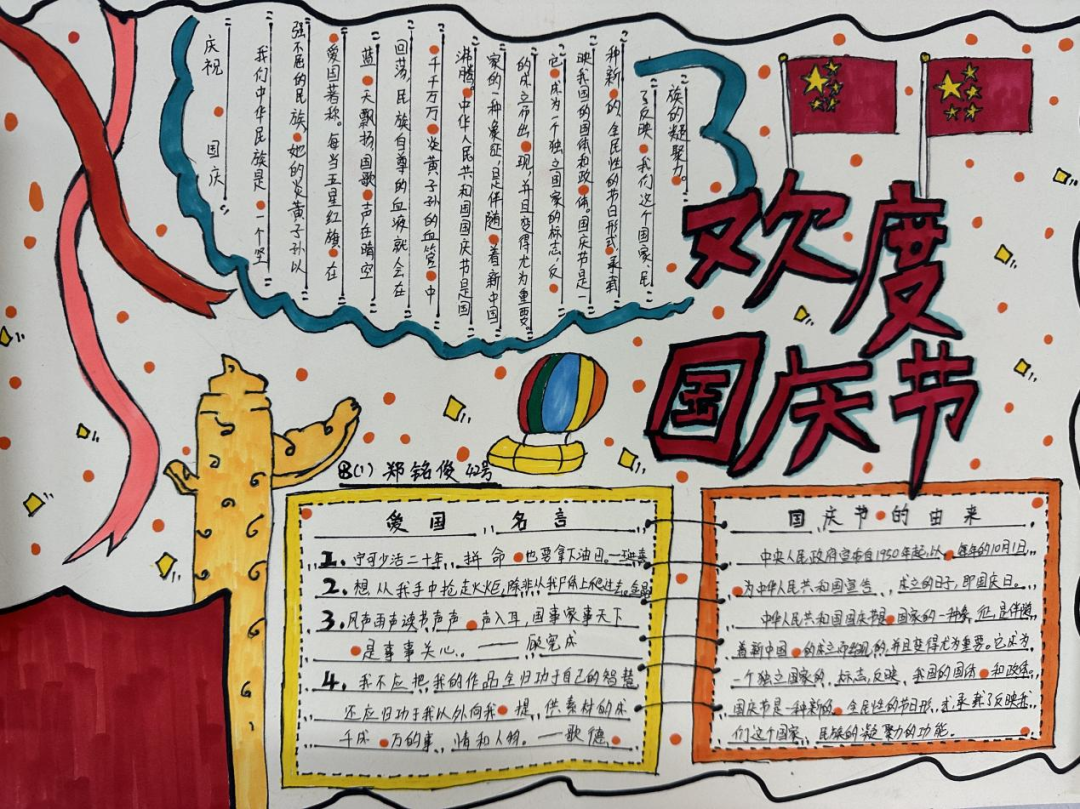 庆祝国庆
我们中华民族是一个坚
强不屈的民族,她的炎黄子孙以
爱国著称。每当五星红旗在
蓝天飘扬,国歌声在晴空
回荡,民族自尊的血液就会在
千千万万炎黄子孙的血管中
沸腾。中华人民共和国国庆节是国
家的一种象征,是伴随着新中国
的成立而出现,并且变得尤为重要
它成为一个独立国家的标志,反
映我国的国体和政体。国庆节是一
种新的、全民性的节日形式,承载
了反映我们这个国家、民
族的凝聚力。
欢度
国庆节
8(1) 郑铭俊 42号
爱国名言
1.宁可少活二十年,拼命也要拿下油田。—
2.想从我手中抢走火炬,除非从我尸体上爬过去。
3.风声雨声读书声声声入耳,国事家事天下
是事事关心。——顾宪成
4.我不应把我的作品全归功于自己的智慧
还应归功于我以外向我提供素材的成
千成万的事情和人物。——歌德
国庆节的由来
中央人民政府宣布自1950年起,以每年的10月1日
为中华人民共和国宣告成立的日子,即国庆日。
中华人民共和国国庆节是国家的一种象征,是伴随
着新中国的成立而出现的,并且变得尤为重要。它成为
一个独立国家的标志,反映我国的国体和政体
国庆节是一种新的、全民性的节日形式,承载了反映我
们这个国家、民族的凝聚力的功能。